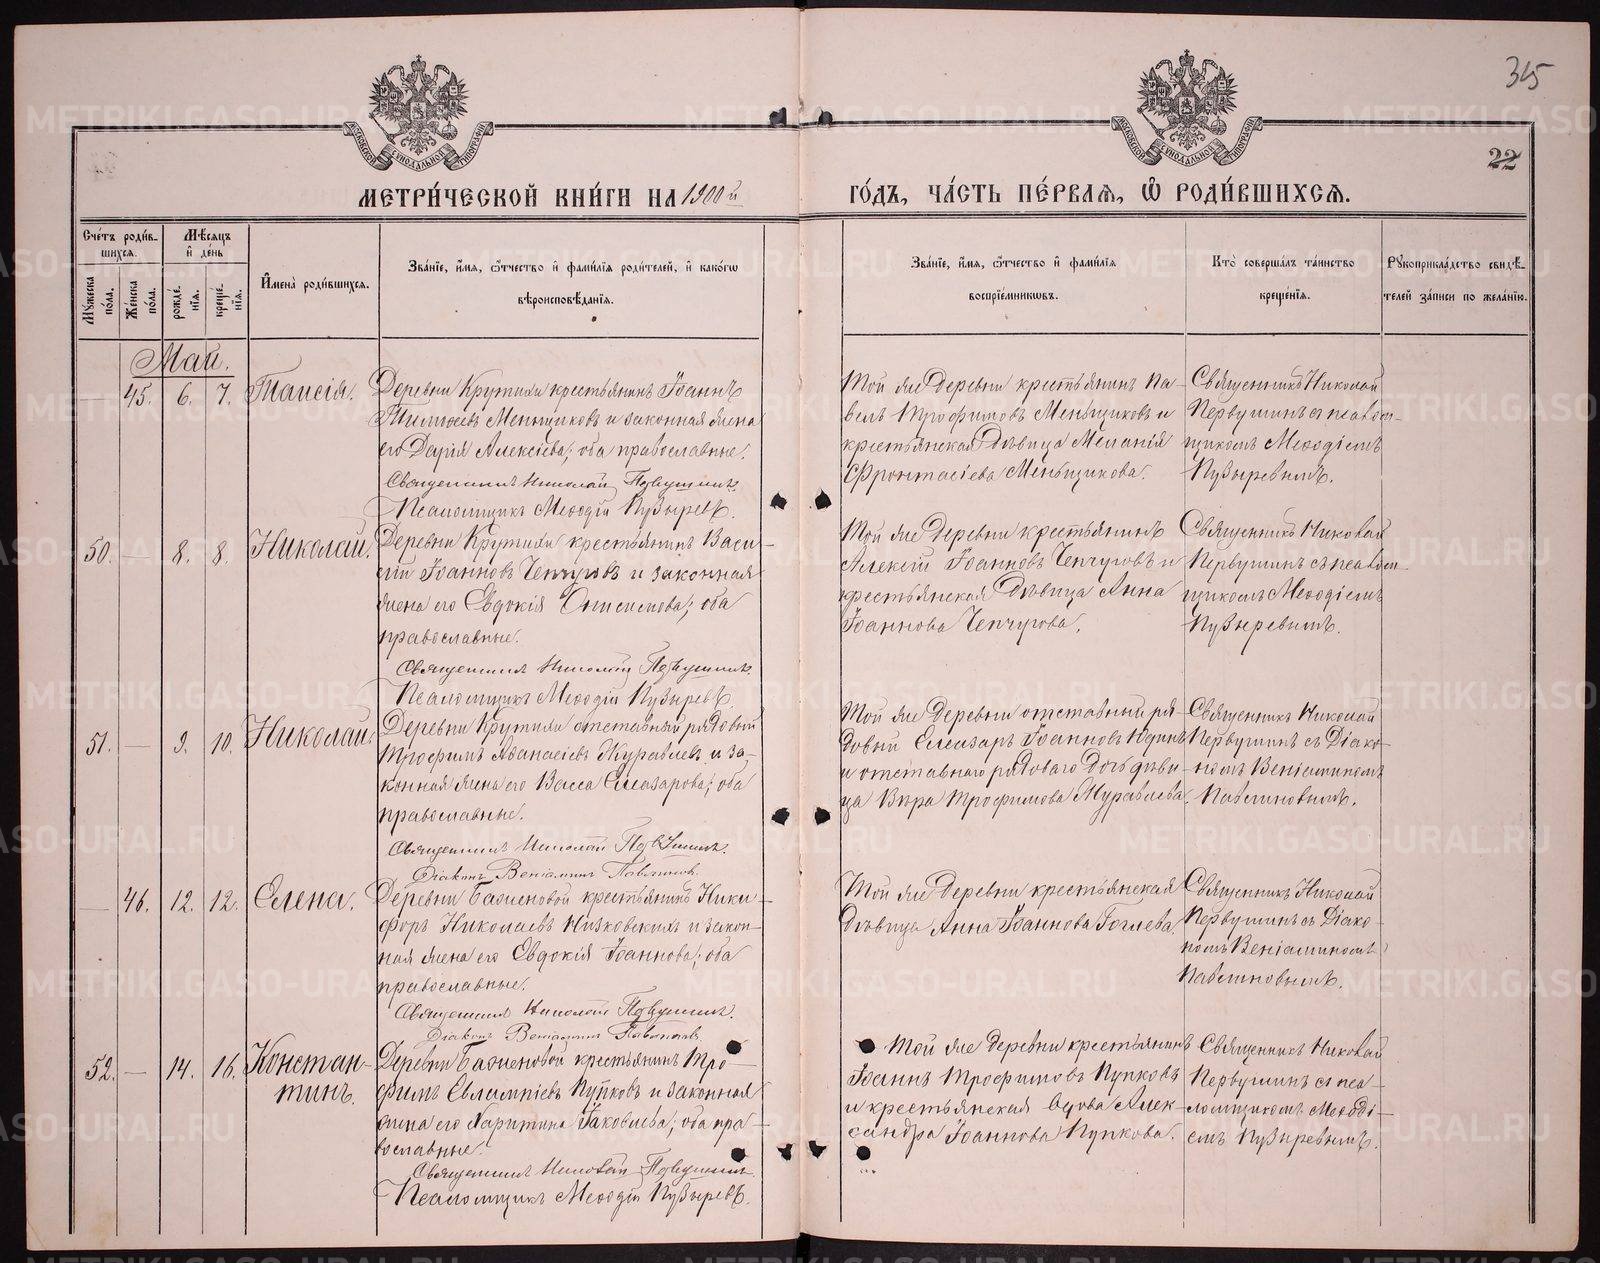 345
22
МЕТРИ́ЧЕСКОЙ КНИ́ГИ НА 1900й ГО́ДЪ, ЧА́СТЬ ПЕ́РВАѦ, Ѡ҆ РОДИ́ВШИХСѦ.
Сче́тъ роди́в-
шихсѧ.
Мꙋ́жеска по́ла.
Же́нска по́ла.
Мѣ́сѧцъ
и҆ де́нь
рожде́-
нїѧ.
креще́-
нїѧ.
И҆мена̀ роди́вшихсѧ.
Зва́нїе, и҆́мѧ, ѻ҆́тчество и҆ фами́лїѧ роди́телей, и҆ како́гѡ
вѣроисповѣ́данїѧ.
Зва́нїе, и҆́мѧ, ѻ҆́тчество и҆ фами́лїѧ
воспрїе́мникѡвъ.
Кто̀ соверша́лъ та́инство
креще́нїѧ.
Рꙋкоприкла́дство свидѣ́-
телей за́писи по жела́нїю.
Май.
— 45. 6. 7. Таисія.
Деревни Крутихи крестьянинъ Іоаннъ
Тимоѳеевъ Меньщиковъ и законная жена
его Дарія Алексіева; оба православные.
Священникъ Николай Первушинъ
Псаломщикъ Меѳодій Пузыревъ.
Той же Деревни крестьянинъ Па-
велъ Трофимовъ Меньщиковъ и
крестьянская Дѣвица Меланія
Меньщикова.
Священникъ Николай
Первушинъ съ псалом-
щикомъ Меѳодіемъ
Пузыревымъ.
50. — 8. 8. Николай.
Деревни Крутихи крестьянинъ Васи-
лій Іоанновъ Чепчуговъ и законная
жена его Евдокія Онисимова; оба
православные.
Священникъ Николай Первушинъ
Псаломщикъ Меѳодій Пузыревъ.
Той же Деревни крестьянинъ
Алексій Іоанновъ Чепчуговъ и
крестьянская Дѣвица Анна
Іоаннова Чепчугова.
Священникъ Николай
Первушинъ съ псалом-
щикомъ Меѳодіемъ
Пузыревымъ.
51. — 9. 10. Николай.
Деревни Крутихи отставный рядовый
Трофимъ Аѳанасіевъ Журавлевъ и за-
конная жена его Васса Елеазарова; оба
православные.
Священникъ Николай Первушинъ.
Діаконъ Веніаминъ Павлиновъ.
Той же Деревни отставный ря-
довый Елеазаръ Іоанновъ Юдинъ
и отставнаго рядоваго дочь дѣви-
ца Вѣра Трофимова Журавлева.
Священникъ Николай
Первушинъ съ Діако-
номъ Веніаминомъ
Павлиновымъ.
— 46. 12. 12. Елена.
Деревни Баженовой крестьянинъ Ники-
форъ Николаевъ Низковскихъ и закон-
ная жена его Евдокія Іоаннова; оба
православные.
Священникъ Николай Первушинъ.
Діаконъ Веніаминъ Павлиновъ.
Той же Деревни крестьянская
Дѣвица Анна Іоаннова Гоглева.
Священникъ Николай
Первушинъ съ Діако-
номъ Веніаминомъ
Павлиновымъ.
52. — 14. 16. Констан-
тинъ.
Деревни Баженовой крестьянинъ Тро-
фимъ Евлампіевъ Пупковъ и законная
жена его Харитина Іаковлева; оба пра-
вославные.
Священникъ Николай Первушинъ
Псаломщикъ Меѳодій Пузыревъ.
Той же деревни крестьянинъ
Іоаннъ Трофимовъ Пупковъ
и крестьянская вдова Алек-
сандра Іоаннова Пупкова.
Священникъ Николай
Первушинъ съ пса-
ломщикомъ Меѳоді-
емъ Пузыревымъ.